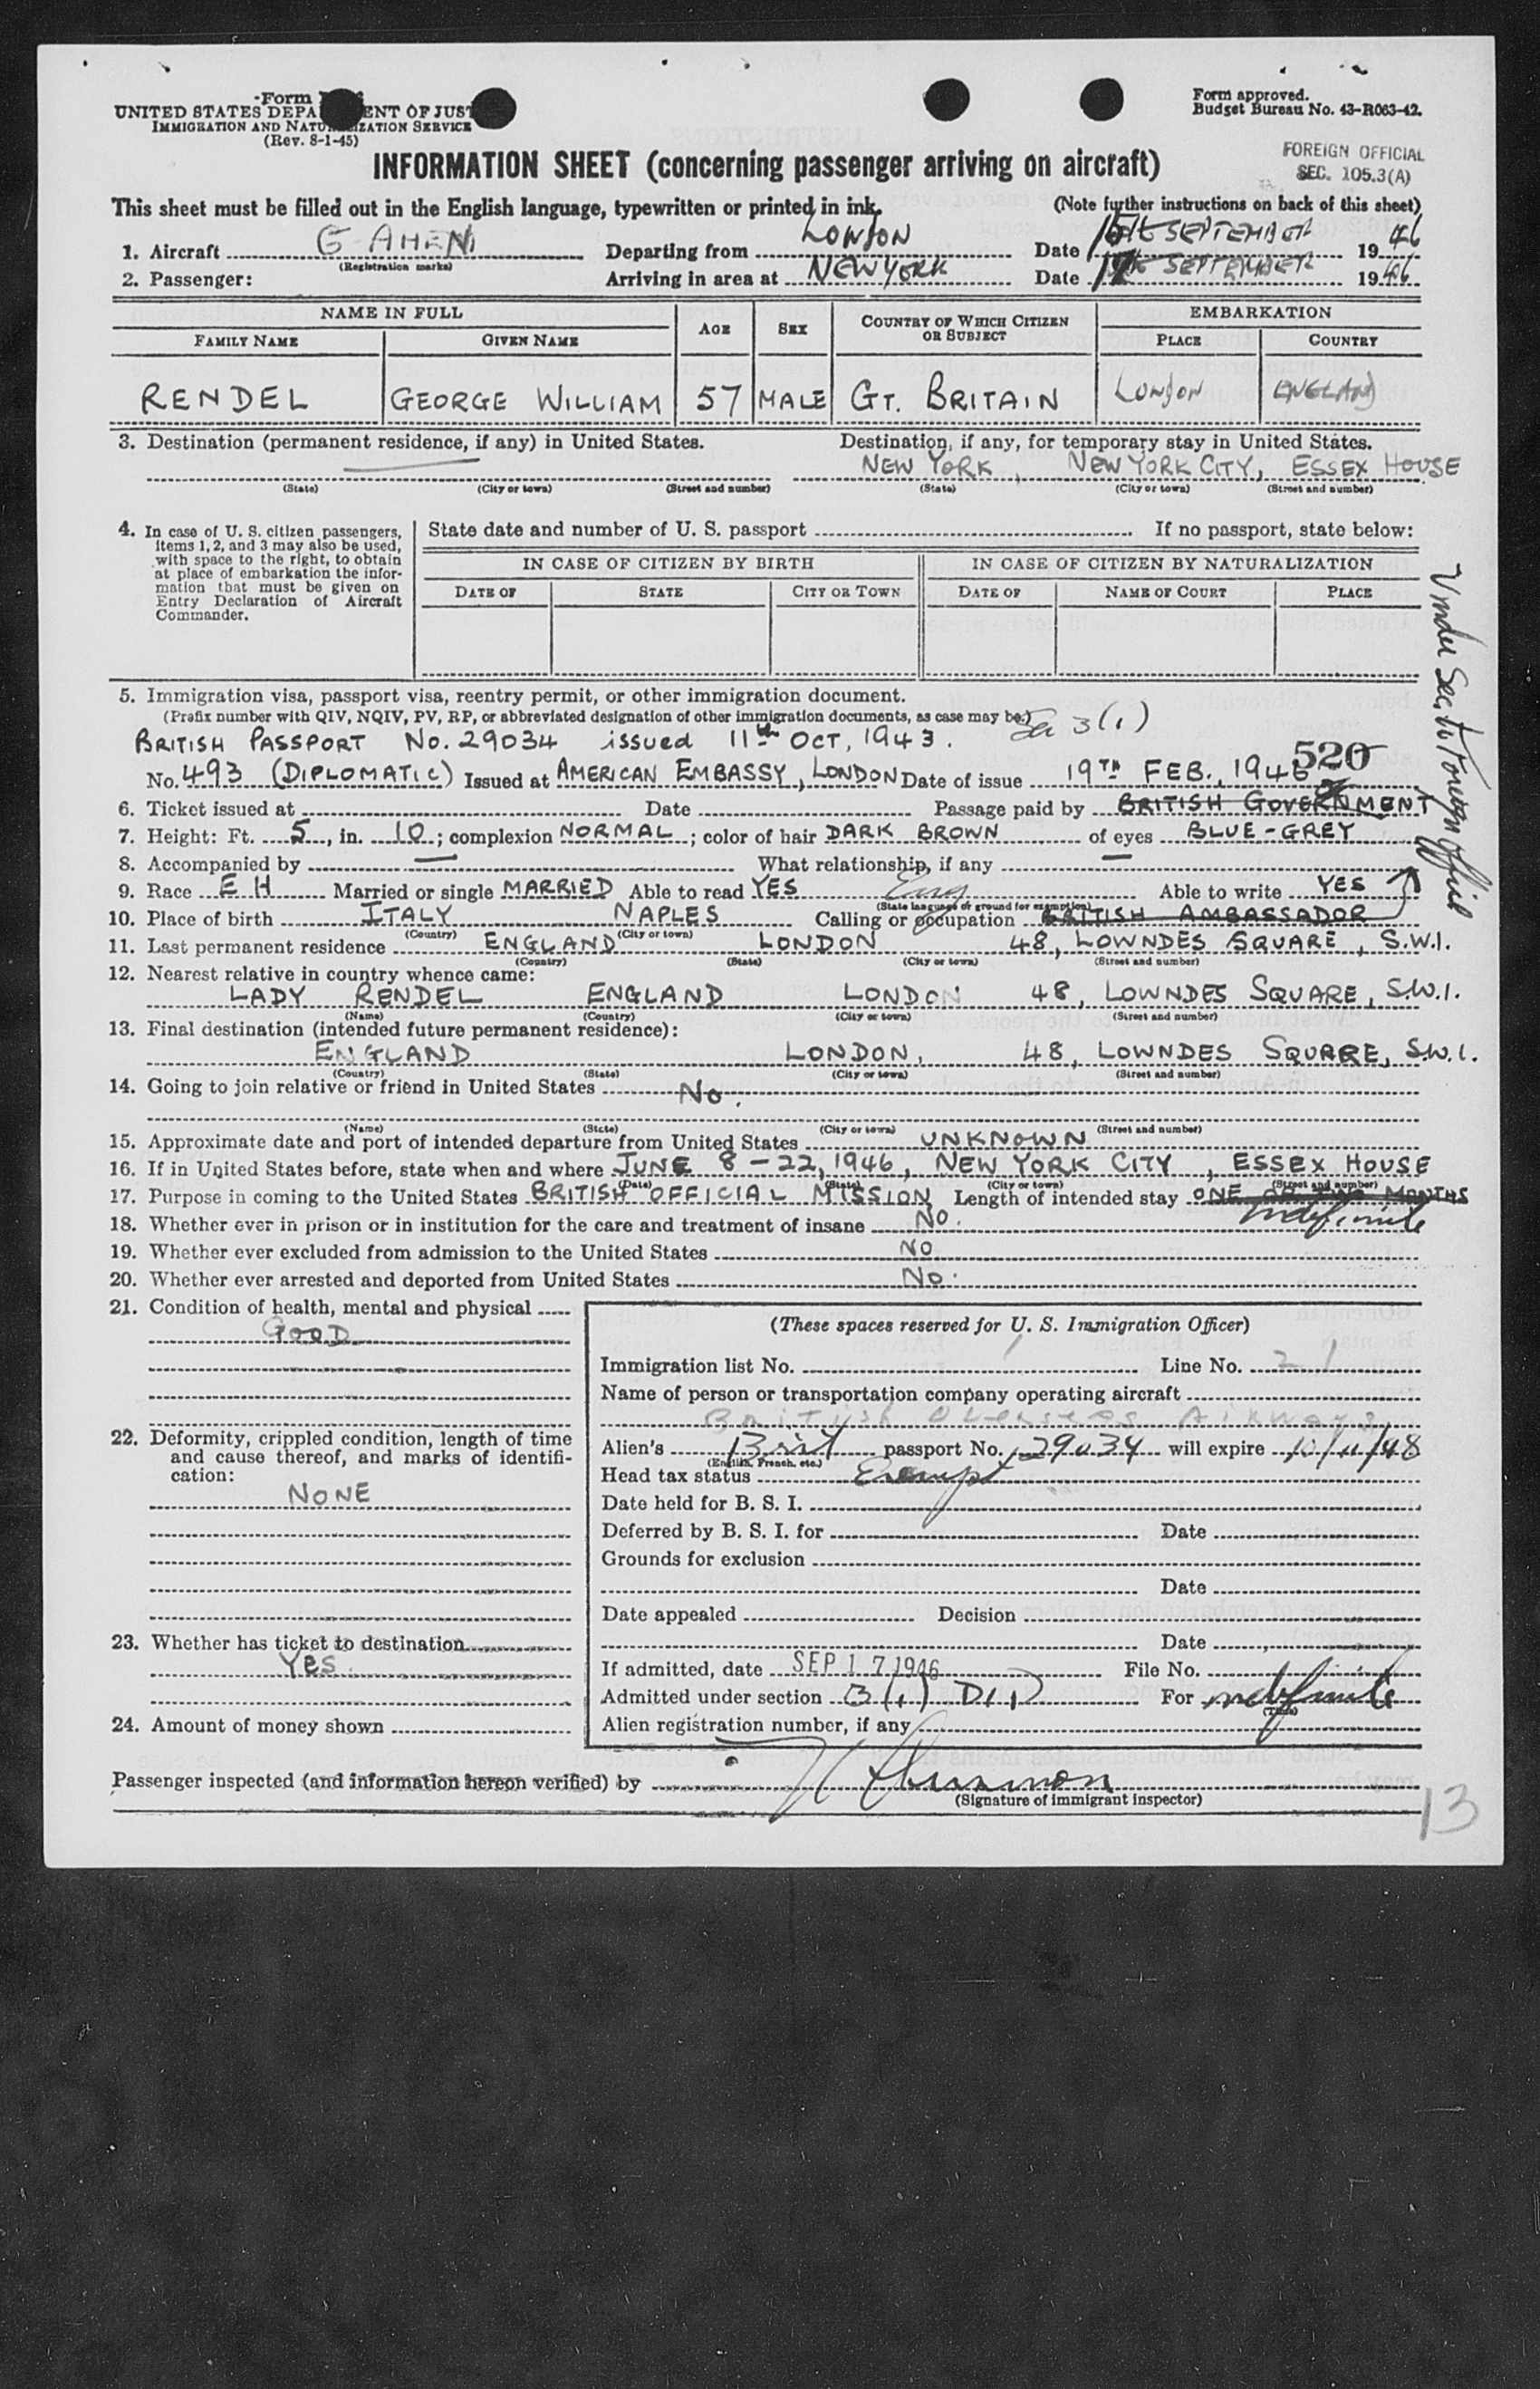 Form
UNITED STATES DEPARTMENT OF JUSTICE
IMMIGRATION AND NATURALIZATION SERVICE
(Rev. 8-1-45)
Form approved.
Budget Bureau No. 43-R063-42.
FOREIGN OFFICIAL
SEC. 105.3(A)
INFORMATION SHEET (concerning passenger arriving on aircraft)
This sheet must be filled out in the English language, typewritten or printed in ink. (Note further instructions on back of this sheet)
1. Aircraft G AHEN Departing from LONDON Date SEPTEMBER 1946
(Registration marks)
2. Passenger: Arriving in area at NEW YORK Date SEPTEMBER 1946
NAME IN FULL AGE SEX COUNTRY OF WHICH CITIZEN OR SUBJECT EMBARKATION
FAMILY NAME GIVEN NAME PLACE COUNTRY
RENDEL GEORGE WILLIAM 57 MALE GT. BRITAIN LONDON ENGLAND
3. Destination (permanent residence, if any) in United States. Destination, if any, for temporary stay in United States.
NEW YORK, NEW YORK CITY, ESSEX HOUSE
(State) (City or town) (Street and number) (State) (City or town) (Street and number)
4. In case of U. S. citizen passengers, items 1, 2, and 3 may also be used, with space to the right, to obtain at place of embarkation the information that must be given on Entry Declaration of Aircraft Commander.
State date and number of U. S. passport If no passport, state below:
IN CASE OF CITIZEN BY BIRTH IN CASE OF CITIZEN BY NATURALIZATION
DATE OF STATE CITY OR TOWN DATE OF NAME OF COURT PLACE
5. Immigration visa, passport visa, reentry permit, or other immigration document.
(Prefix number with QIV, NQIV, PV, RP, or abbreviated designation of other immigration documents, as case may be.) 3(1)
BRITISH PASSPORT No. 29034 issued 11th OCT, 1943.
520
No. 493 (DIPLOMATIC) Issued at AMERICAN EMBASSY, LONDON Date of issue 19TH FEB., 1946
6. Ticket issued at Date Passage paid by BRITISH GOVERNMENT
7. Height: Ft. 5, in. 10; complexion NORMAL; color of hair DARK BROWN of eyes BLUE-GREY
8. Accompanied by — What relationship, if any —
9. Race E H Married or single MARRIED Able to read YES Eng Able to write YES
(State language or ground for exemption)
10. Place of birth ITALY NAPLES Calling or occupation BRITISH AMBASSADOR
(Country) (City or town)
11. Last permanent residence ENGLAND LONDON 48, LOWNDES SQUARE, S.W.1.
(Country) (State) (City or town) (Street and number)
12. Nearest relative in country whence came:
LADY RENDEL ENGLAND LONDON 48, LOWNDES SQUARE, S.W.1.
(Name) (Country) (City or town) (Street and number)
13. Final destination (intended future permanent residence):
ENGLAND LONDON, 48, LOWNDES SQUARE, S.W.1.
(Country) (State) (City or town) (Street and number)
14. Going to join relative or friend in United States No.
(Name) (State) (City or town) (Street and number)
15. Approximate date and port of intended departure from United States UNKNOWN
16. If in United States before, state when and where JUNE 8-22, 1946, NEW YORK CITY, ESSEX HOUSE
(Date) (State) (City or town) (Street and number)
17. Purpose in coming to the United States BRITISH OFFICIAL MISSION Length of intended stay ONE OR TWO MONTHS
indefinite
18. Whether ever in prison or in institution for the care and treatment of insane NO.
19. Whether ever excluded from admission to the United States NO
20. Whether ever arrested and deported from United States No.
21. Condition of health, mental and physical
GOOD
22. Deformity, crippled condition, length of time and cause thereof, and marks of identification:
NONE
23. Whether has ticket to destination
YES.
24. Amount of money shown
(These spaces reserved for U. S. Immigration Officer)
Immigration list No. Line No. 21
Name of person or transportation company operating aircraft
British Overseas Airways
Alien's Brit passport No. 29034 will expire 10/11/48
(English, French, etc.)
Head tax status Exempt
Date held for B. S. I.
Deferred by B. S. I. for Date
Grounds for exclusion
Date
Date appealed Decision
Date
If admitted, date SEP 17 1946 File No.
Admitted under section 3(1) For indefinite
(Time)
Alien registration number, if any
Passenger inspected (and information hereon verified) by
(Signature of immigrant inspector)
13